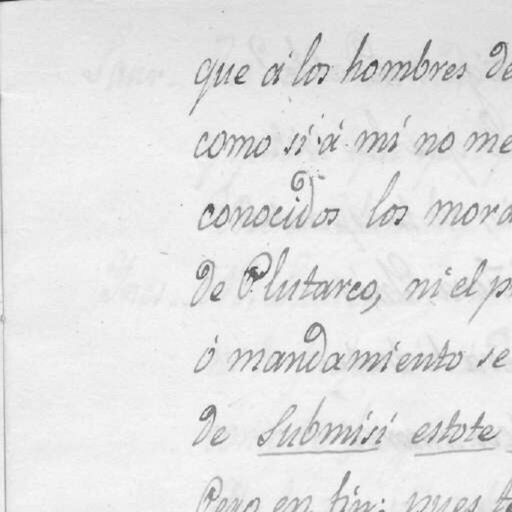 que á los hombres de
como si á mí no me
conocidos los mora
de Plutarco, ni el pr
ó mandamiento se
de Submisi estote
Pero en fin: pues t